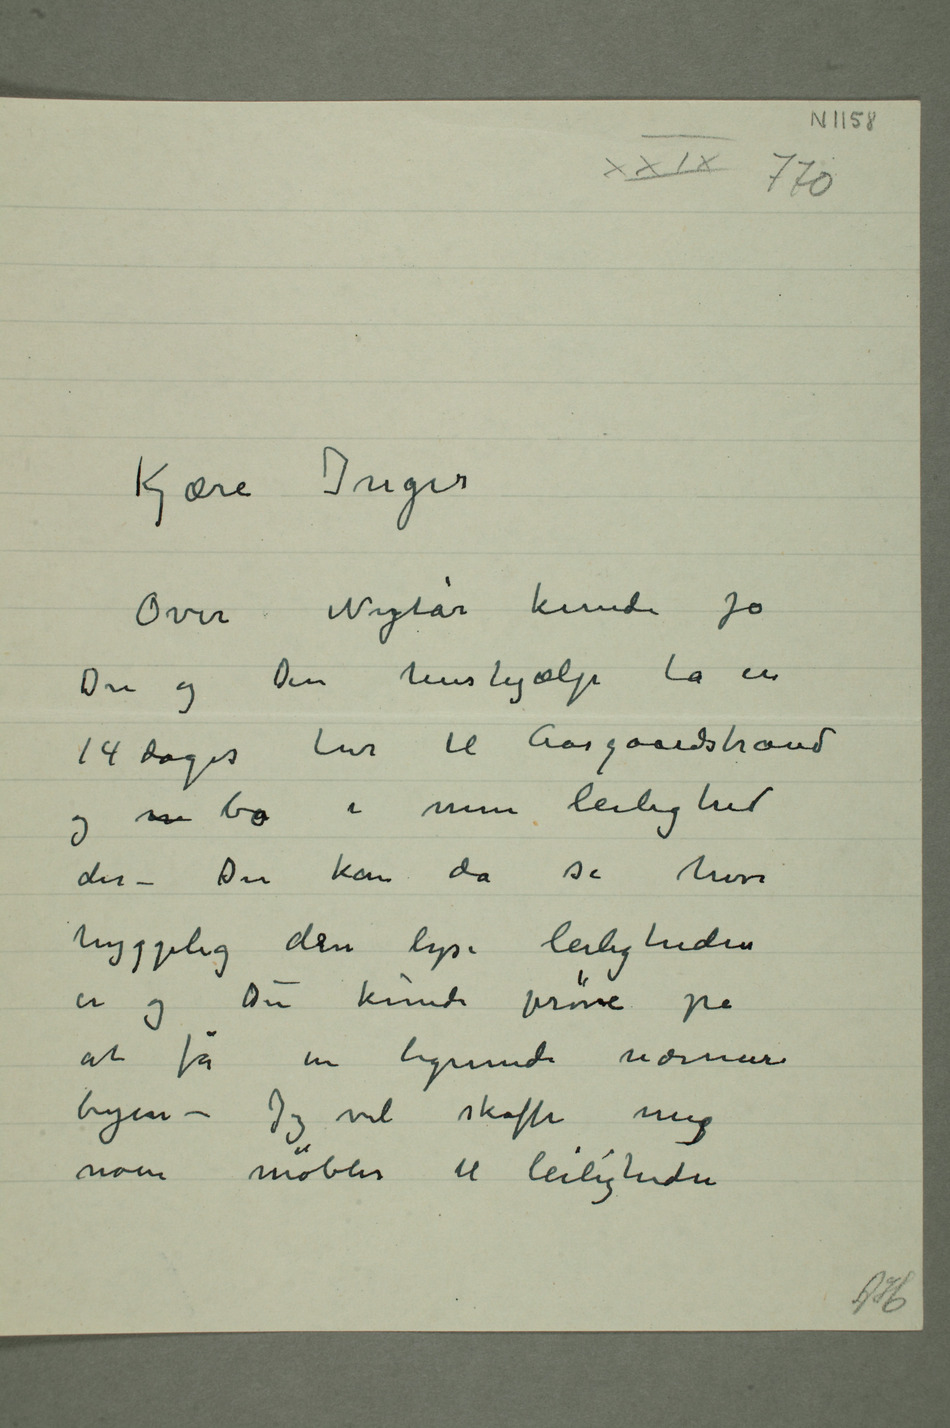 N 1158
XXIX 770
Kjære Inger
Over Nytår kunde jo
Du og Din hushjælp ta en
14 dages tur til Aasgaardstrand
og bo i min leilighed
der – Du kan da se hvor
hyggelig den lyse leiligheden
er og Du kunde prøve på
at få en lignende nærmere
byen – Jeg vil skaffe mig
noen møbler til leiligheden